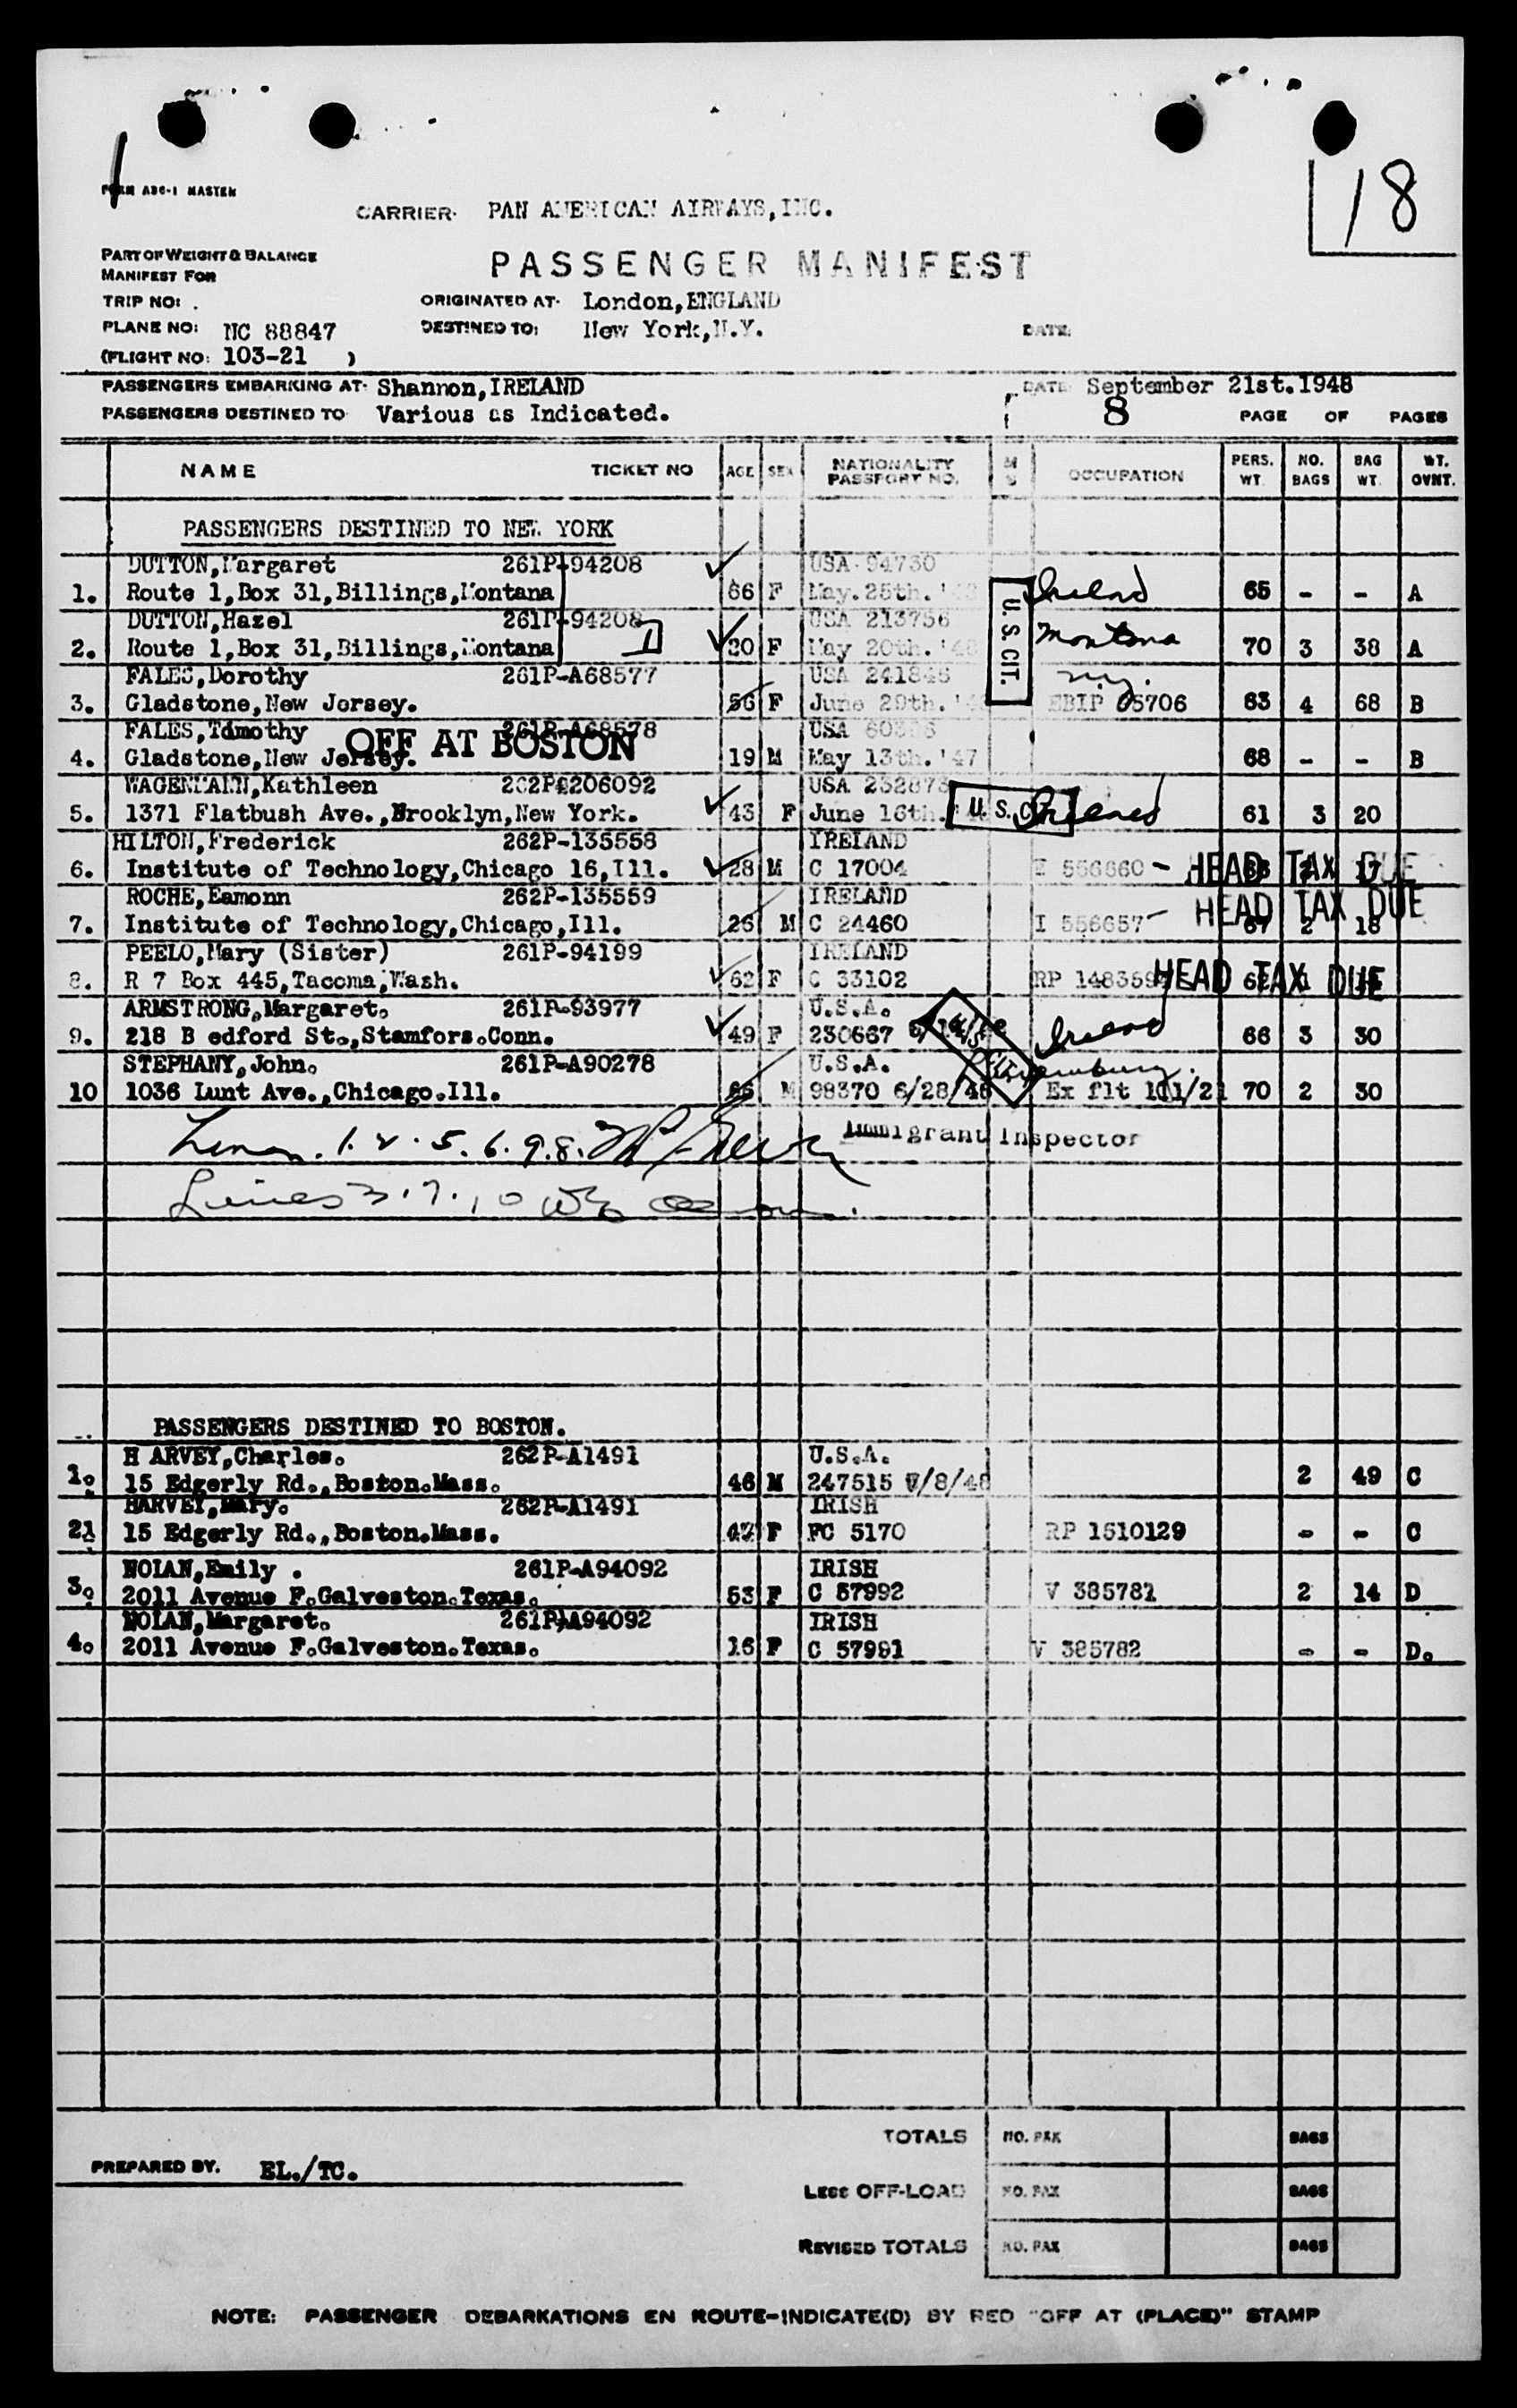 18
FORM ABC-1 MASTER
CARRIER: PAN AMERICAN AIRWAYS, INC.
PART OF WEIGHT & BALANCE
MANIFEST FOR
PASSENGER MANIFEST
TRIP NO: .
ORIGINATED AT: London, ENGLAND
PLANE NO: NC 88847
DESTINED TO: New York, N.Y.
DATE:
(FLIGHT NO: 103-21 )
PASSENGERS EMBARKING AT: Shannon, IRELAND
DATE September 21st. 1948
PASSENGERS DESTINED TO Various as Indicated.
8 PAGE OF PAGES
NAME TICKET NO AGE SEX NATIONALITY PASSPORT NO. M S OCCUPATION PERS. WT. NO. BAGS BAG WT. WT. OVNT.
PASSENGERS DESTINED TO NEW YORK
DUTTON, Margaret 261P-94208 USA 94730
1. Route 1, Box 31, Billings, Montana 66 F May. 25th. U.S. CIT. Ireland 65 - - A
DUTTON, Hazel 261P-94208 USA 213756
2. Route 1, Box 31, Billings, Montana 20 F May 20th. '48 Montana 70 3 38 A
FALES, Dorothy 261P-A68577 USA 241846 N.Y.
3. Gladstone, New Jersey. 56 F June 29th. EBIP 05706 63 4 68 B
FALES, Timothy 261P-A68578 USA
OFF AT BOSTON
4. Gladstone, New Jersey. 19 M May 13th. '47 68 - - B
WAGEMANN, Kathleen 262P-206092 USA 232873
5. 1371 Flatbush Ave., Brooklyn, New York. 43 F June 16th. U.S. CIT. Ireland 61 3 20
HILTON, Frederick 262P-135558 IRELAND
6. Institute of Technology, Chicago 16, Ill. 28 M C 17004 556660 - HEAD TAX DUE 17
ROCHE, Eamonn 262P-135559 IRELAND
7. Institute of Technology, Chicago, Ill. 26 M C 24460 I 556657 - HEAD TAX DUE 67 2 18
PEELO, Mary (Sister) 261P-94199 IRELAND
8. R 7 Box 445, Tacoma, Wash. 62 F C 33102 RP 148359 HEAD TAX DUE
ARMSTRONG, Margaret. 261P-93977 U.S.A.
9. 218 B edford St., Stamfors. Conn. 49 F 230667 Ireland 66 3 30
STEPHANY, John. 261P-A90278 U.S.A.
10 1036 Lunt Ave., Chicago. Ill. 66 M 98370 6/28/48 Ex flt 101/21 70 2 30
1. 2. 5. 6. 9. 8. Immigrant Inspector
Lines 3. 7. 10
PASSENGERS DESTINED TO BOSTON.
H ARVEY, Charles. 262P-A1491 U.S.A.
1. 15 Edgerly Rd., Boston. Mass. 46 M 247515 /8/48 2 49 C
HARVEY, Mary. 262P-A1491 IRISH
2. 15 Edgerly Rd., Boston. Mass. 42 F FC 5170 RP 1510129 - - C
NOLAN, Emily . 261P-A94092 IRISH
3. 2011 Avenue F. Galveston. Texas. 53 F C 57992 V 385781 2 14 D
NOLAN, Margaret. 261P-A94092 IRISH
4. 2011 Avenue F. Galveston. Texas. 16 F C 57991 V 385782 - - D.
TOTALS NO. PAX BAGS
PREPARED BY. EL./TC.
LESS OFF-LOAD NO. PAX BAGS
REVISED TOTALS NO. PAX BAGS
NOTE: PASSENGER DEBARKATIONS EN ROUTE-INDICATE(D) BY RED "OFF AT (PLACE)" STAMP